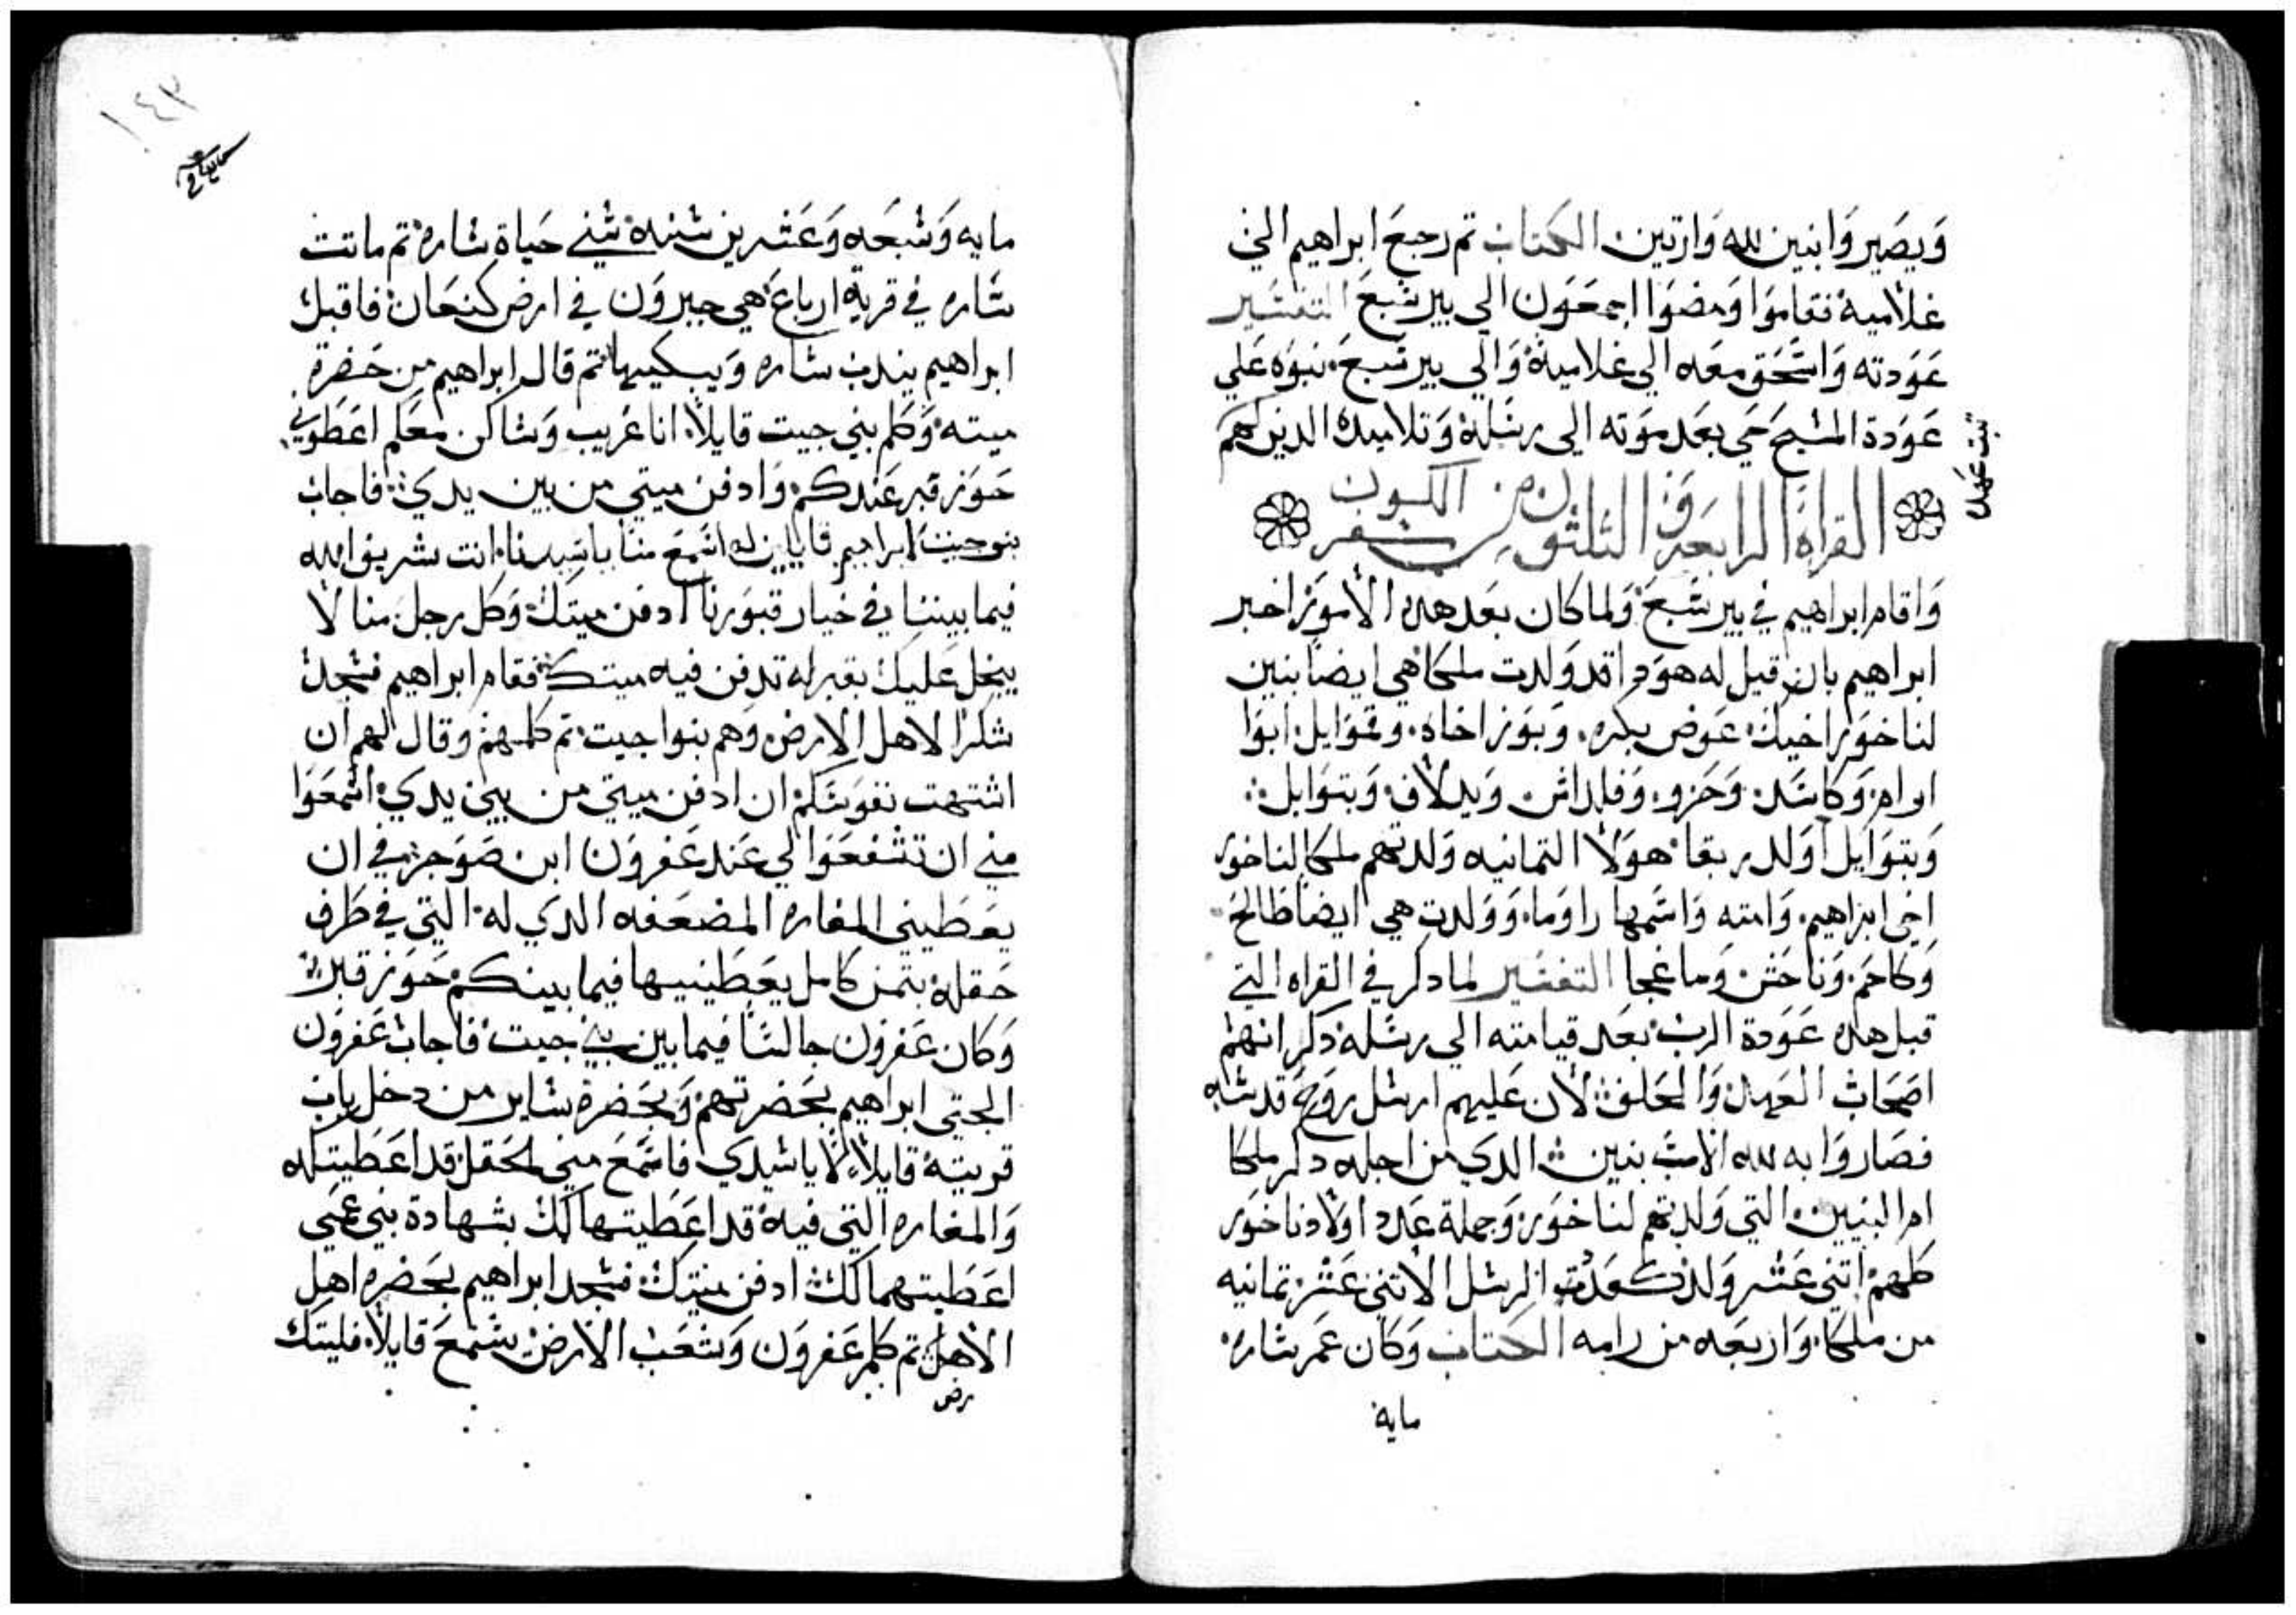 وَيصَيروَا بنين لله وَارتين الكتاب تم رجعَ ابراهيم الي
غلاميه فقامَوَا وَمضوَا اجمعَوَن الي بير شبعَ التفشير
عَوَدته وَاشحَق معَه الي غلاميه وَالي بير شبعَ نبوَه عَلي
عَوَدة المشيحَ حَي بعَد موَته الي رشله وَتلاميده الدين لهم
ثبت عهدا
القراة الرابعَة وَالتلتوَن من سفر الكون
وَاقام ابراهيم في بير شبعَ وَلما كان بعَد هده الاموَر اخبر
ابراهيم بان قيل له هوَدا قد وَلدت ملكا هي ايضا بنين
لناخوَر اخيك عوَض بكره وَبوَز اخاه وقموَايل ابوَا
ارام وَكاشد وَحَزو وَفلداش وَيدلاف وَبتوَايل
وَبتوَايل اوَلد ربقا هوَلا التمانيه وَلدتهم ملكا لناخوَر
اخي ابراهيم وَامته وَاشمها راوَما وَوَلدت هي ايضا طالحَ
وَكاحَم وَناحَش وَماعجا التفشير لما دكر في القراه التي
قبل هده عَوَدة الرب بعَد قيامته الي رشله دكر انهم
اصحَاب العَهد وَالحَلف لان عَليهم ارشل روَحَ قدشه
فصَاروَا به لله الاب بنين الدي من اجله دكر ملكا
ام البنين التي وَلدتهم لناخوَر وَجملة عَدد اوَلاد ناخوَر
كلهم اتني عَشر وَلد كعَدت الرشل الاتني عَشر تمانيه
من ملكا وَاربعَه من رامه الكتاب وَكان عَمر شاره
مايه
١٤٣
مايه وَشبعَه وَعَشرين شنه شني حَياة شاره تم ماتت
شاره في قرية ارباعَ هي حبروَن في ارض كنعَان فاقبل
ابراهيم يندب شاره وَيبكيها تم قال ابراهيم من حَضرة
ميته وَكلم بني حيت قايلا انا غريب وَشاكن معَكم اعَطوَني
حَوَز قبر عَندكم وَادفن ميتي من بين يدي فاجاب
بنو حيت ابراهيم قايلين له اشمعَ منا يا شيدنا انت شريف الله
فيما بيننا في خيار قبوَرنا ادفن ميتك وَكل رجل منا لا
يبخل عَليك بقبره تدفن فيه ميتك فقام ابراهيم فشجد
شكرا لاهل الارض وَهم بنوا حيت تم كلمهم وقال لهم ان
اشتهت نفوَشكم ان ادفن ميتي من بين يدي اشمعَوَا
مني ان تشفعَوَا لي عَند عَفروَن ابن صَوَحر في ان
يعَطيني المغاره المضعَفه الدي له التي في طَرف
حَقله بتمن كامل يعَطَينيها فيما بينكم حَوَز قبر
وَكان عَفروَن جالشا فيما بين بني حيت فاجاب عَفروَن
الحيتي ابراهيم بحَضرتهم وَبحَضرة شاير من دخل باب
قريته قايلا لا يا شيدي فاشمعَ مني الحَقل قد اعَطَيتكه
وَالمغاره التي فيه قد اعَطَيتها لك بشهادة بني عَمي
اعَطَيتهما لك ادفن ميتك فشجد ابراهيم بحَضره اهل
الاهل تم كلم عَفروَن وَشعَب الارض يشمعَ قايلا فليتك
رض